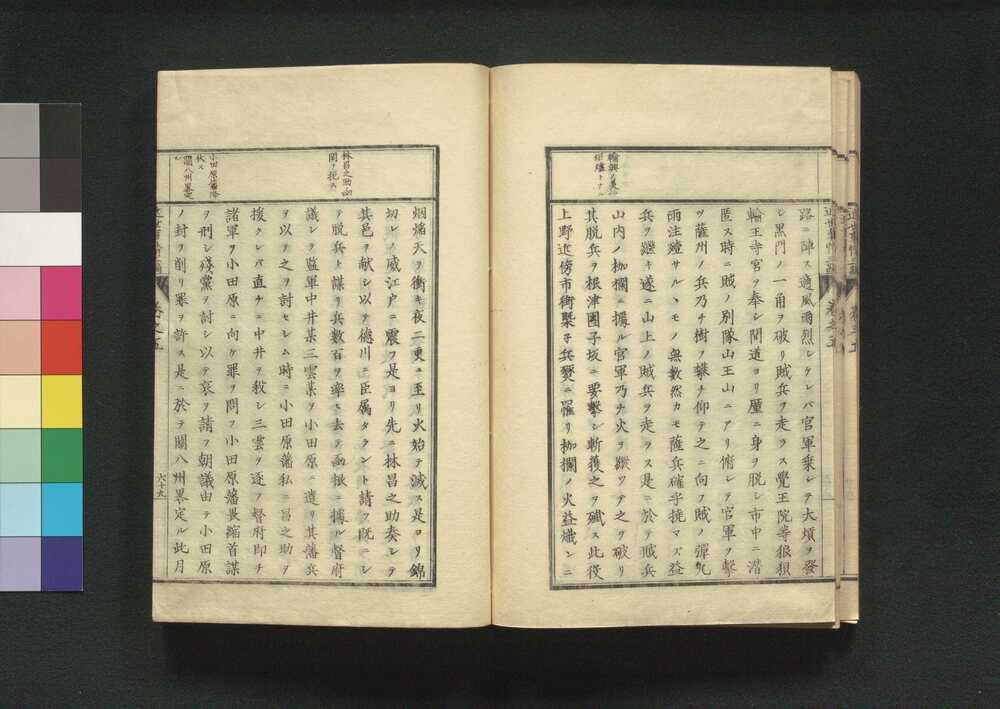 輪奐ノ美
路ニ陣ス適風雨烈シケレバ官軍乗シテ大煩ヲ發
シ黒門ノ一角ヲ破リ賊兵ヲ走ラス覺王院等狼狽
輪王寺宮ヲ奉シ間道ヨリ僅ニ身ヲ脱シ市中ニ潜
匿ス時ニ賊ノ別隊山王山ニアリ俯シテ官軍ヲ撃
ツ薩州ノ兵乃チ樹ヲ攀チ仰テ之ニ向フ賊ノ彈丸
雨注殪サルヽモノ無數然カモ薩兵確乎撓マズ益
兵ヲ繼キ遂ニ山上ノ賊兵ヲ走ラス是ニ於テ賊兵
山内ノ枷欄ニ據ル官軍乃チ火ヲ縱ツテ之ヲ破リ
其脱兵ヲ根津團子坂ニ要撃シ斬獲之ヲ殱ス此役
上野近傍市街槩子兵燹ニ罹リ枷欄ノ火益熾ンニ
林昌之助凾
関ヲ扼ス
小田原藩降
伏ス
關八州畧定
烟熖天ヲ衝キ夜二更ニ至リ火始テ滅ス是ヨリ錦
切レノ威江戸ニ震フ是ヨリ先ニ林昌之助奏シテ
其邑ヲ献シ以テ德川ニ臣属タランヿ請フ既ニシ
テ脱兵ト謀リ兵數百ヲ率ヰ去テ凾根ニ據ル督府
議シテ監軍中井某三雲某ヲ小田原ニ遣リ其藩兵
ヲ以テ之ヲ討セシム時ニ小田原藩私ニ昌之助ヲ
援クレバ直チニ中井ヲ殺シ三雲ヲ逐フ督府即チ
諸軍ヲ小田原ニ向ケ罪ヲ問フ小田原藩畏縮首謀
ヲ刑シ殘黨ヲ討シ以テ哀ヲ請フ朝議由テ小田原
ノ封ヲ削リ罪ヲ許ス是ニ於テ關八州畧定ル此月
六十九